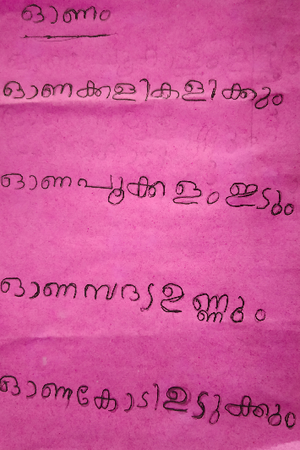 ഓണം
ഓണക്കളികളിക്കും
ഓണപൂക്കളം ഇടും
ഓണസദ്യഉണ്ണും
ഓണകോടിഉടുക്കും